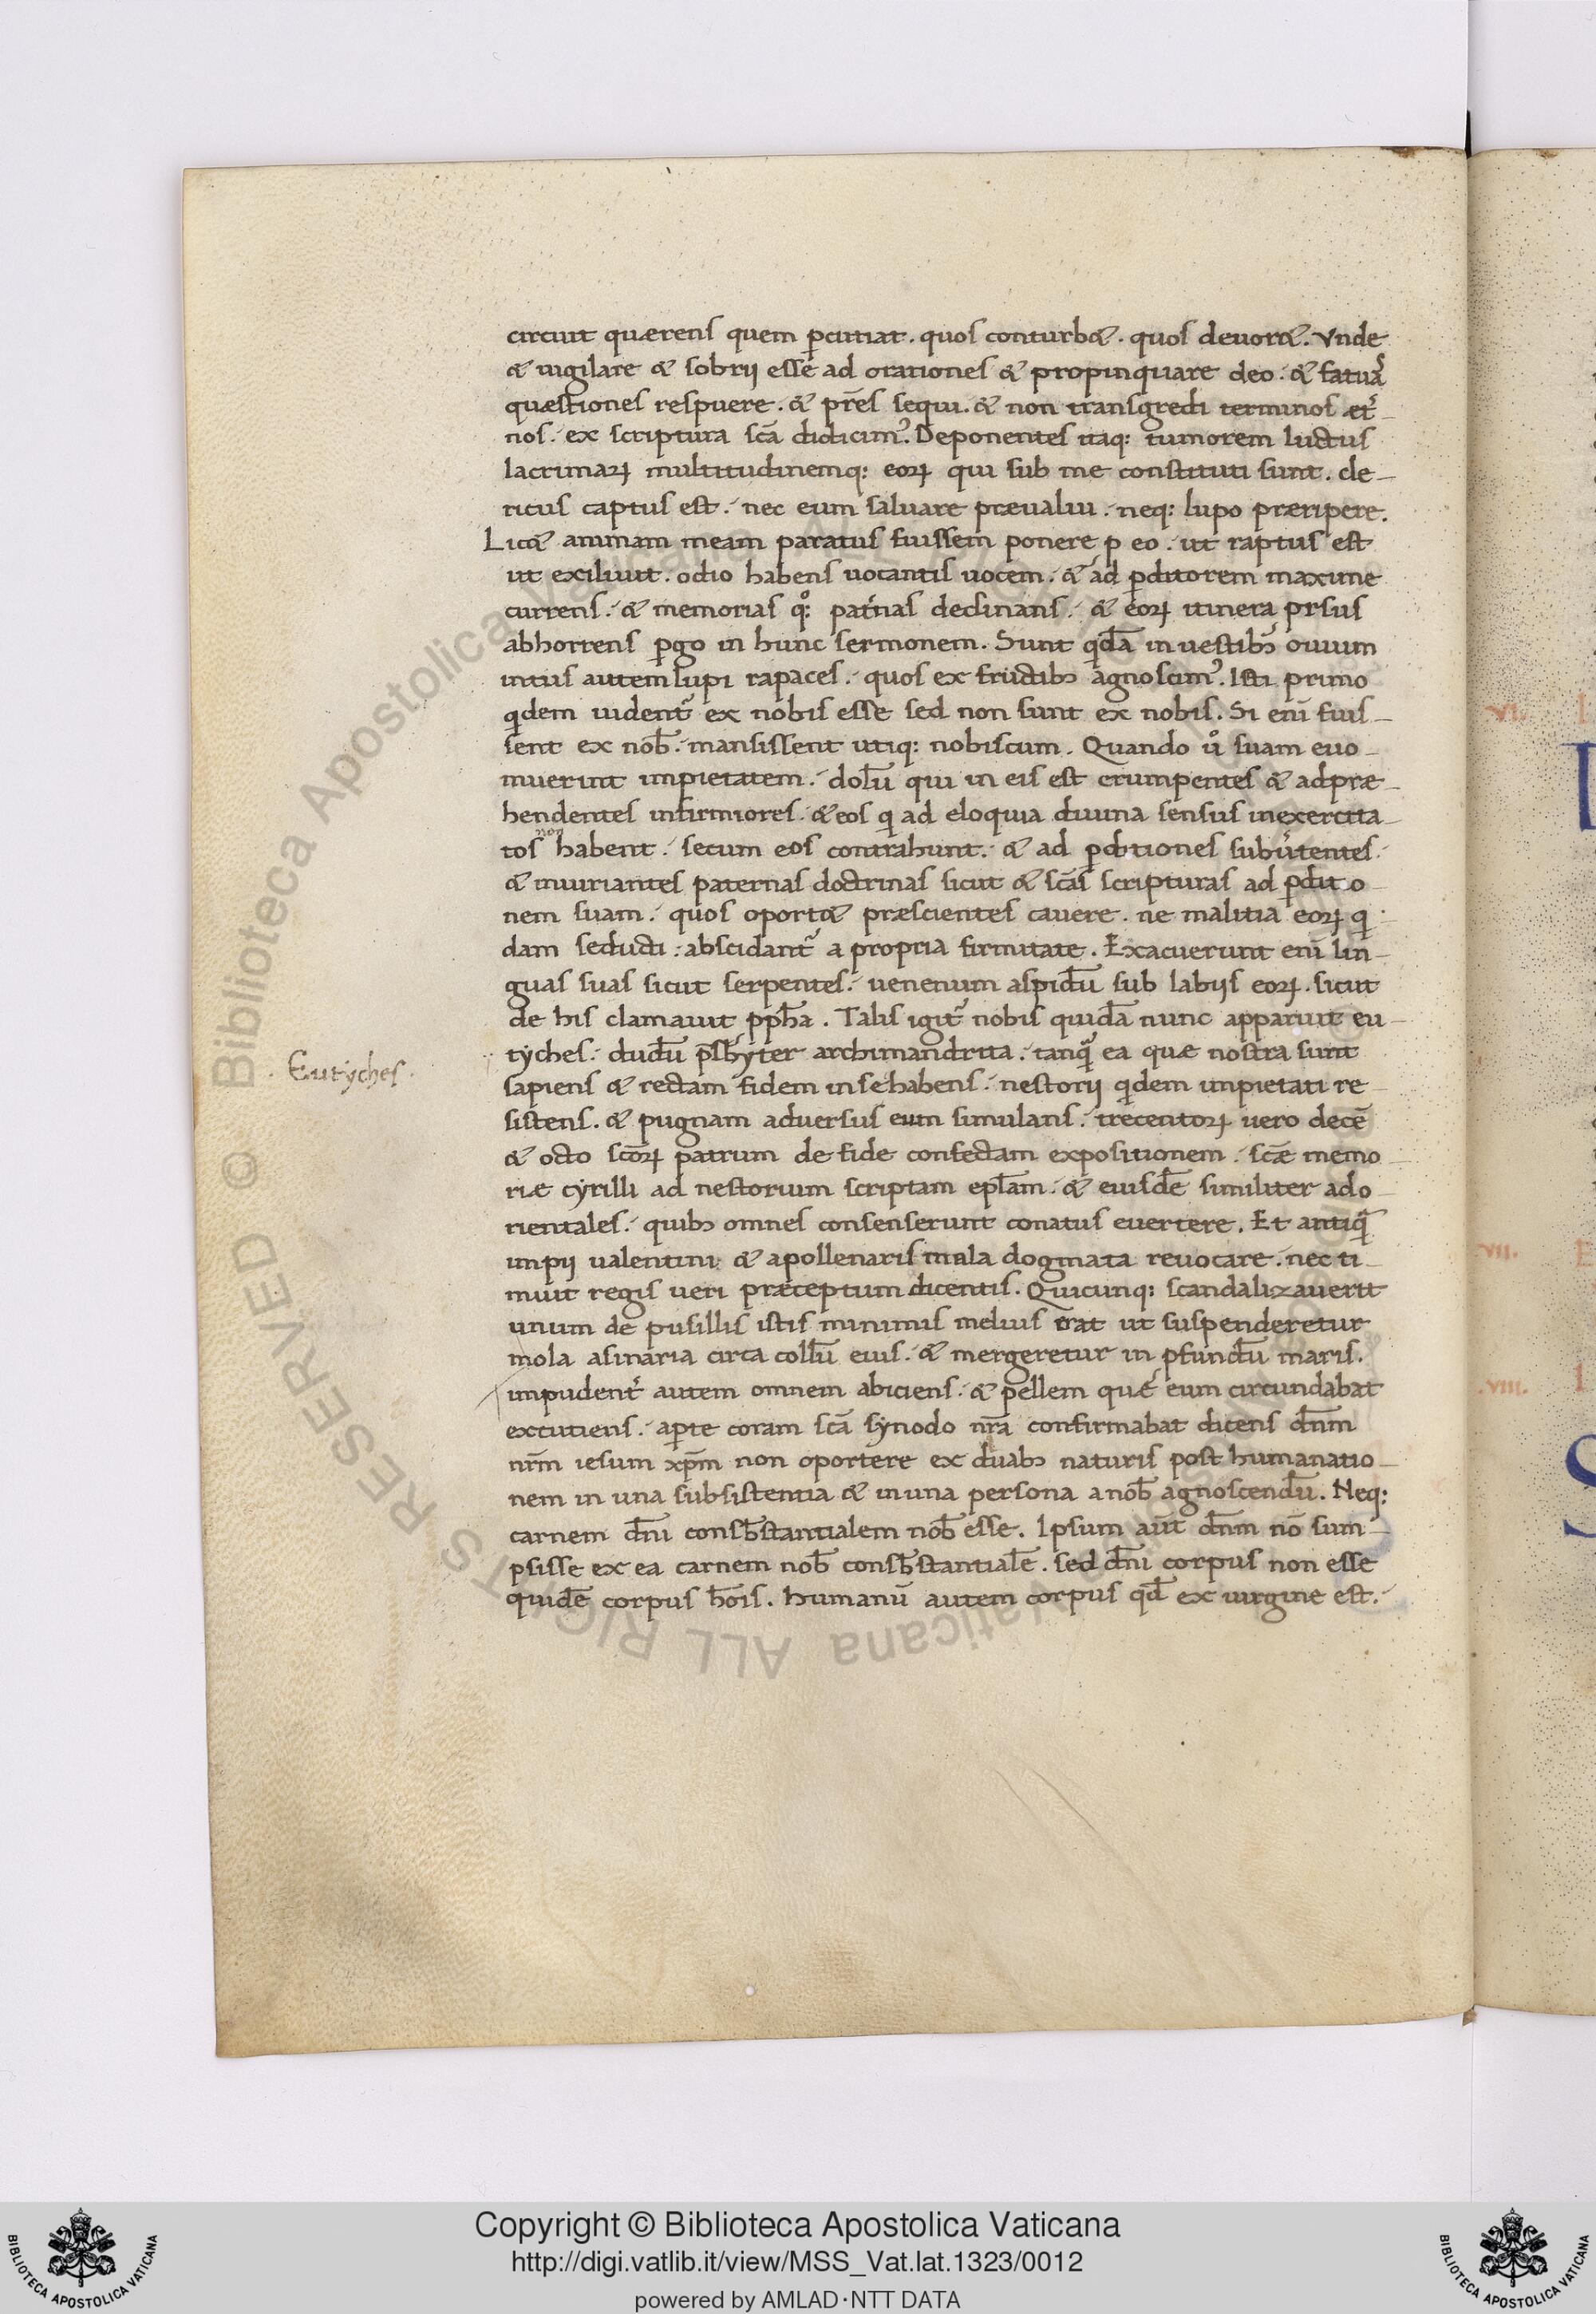 circuit quærens quem ꝑcutiat. quos conturb&. quos deuor&. Vnde
& uigilare & sobrij esse ad orationes & propinquare deo. & fatuaꝭ
quæstiones respuere. & pr̅es sequi. & non transgredi terminos æt̉
nos. ex scriptura sc̅a didicimꝰ. Deponentes itaq: tumorem luctus
lacrimaꝝ multitudinemq: eoꝝ qui sub me constituti sunt. cle-
ricus captus est. nec eum saluare præualui. neq: lupo præripere.
Lic& animam meam paratus fuissem ponere ꝓ eo. ut raptus est
ut exiliuit. odio habens uocantis uocem. & ad ꝑditorem maxime
currens. & memorias qͦ: pat̉nas declinans. & eoꝝ itinera prsus
abhorrens ꝑgo in hunc sermonem. Sunt qda̅ in uestibꝫ ouium
intus autem lupi rapaces. quos ex fructibꝫ agnoscimꝰ. Isti primo
qdem uident̉ ex nobis esse sed non sunt ex nobis. Si eni̅ fuis-
sent ex nob̅. mansissent utiq: nobiscum. Quando uͦ suam euo-
muerint impietatem. dolu̅ qui in eis est erumpentes & adpræ-
hendentes infirmiores. & eos q ad eloquia diuina sensus inexercita-
non
tos habent. secum eos contrahunt. & ad ꝑditiones subu̓tentes.
& iniuriantes paternas doctrinas sicut & sc̅as scripturas ad ꝑditio-
nem suam. quos oport& præscientes cauere. ne malitia eoꝝ q
dam seducti: abscidant̉ a propria firmitate. Exacuerunt eni̅ lin-
guas suas sicut serpentes. uenenum aspidu̅ sub labijs eoꝝ. sicut
de his clamauit pph̅a. Talis igit̉ nobis quida̅ nunc apparuit eu-
Eutyches.
tyches. dudu̅ p̅sbyter archimandrita. tanq̃ ea quæ nostra sunt
sapiens & rectam fidem in se habens. nestorij qdem impietati re-
sistens. & pugnam aduersus eum simulans. trecentoꝝ uero dece̅
& octo sc̅oꝝ patrum de fide confectam expositionem. sc̅æ memo-
riæ cyrilli ad nestorium scriptam epl̅am. & eiusde̅ similiter ad o-
rientales. quibꝫ omnes consenserunt conatus euertere. Et antiq̃
impij ualentini & apollenaris mala dogmata reuocare. nec ti-
muit regis ueri præceptum dicentis. Quicunq: scandalizauerit
unum de pusillis istis minimis melius erat ut suspenderetur
mola asinaria circa collu̅ eius. & mergeretur in ꝓfundu̅ maris.
impudent̉ autem omnem abiciens. & pellem quæ eum circundabat
excutiens. aꝑte coram sc̅a synodo nr̅a confirmabat dicens dn̅m
nr̅m iesum xp̅m non oportere ex duabꝫ naturis post humanatio-
nem in una subsistentia & in una persona a nob̅ agnoscendu̅. Neq:
carnem dn̅i consb̅stantialem nob̅ esse. Ipsum aut̅ dn̅m no̅ sum-
psisse ex ea carnem nob̅ consb̅stantiale̅. sed dn̅i corpus non esse
quide̅ corpus ho̅is. humanu̅ autem corpus qd̅ ex uirgine est.
vi.
vii.
viii.
Copyright © Biblioteca Apostolica Vaticana
http://digi.vatlib.it/view/MSS_Vat.lat.1323/0012
powered by AMLAD·NTT DATA
BIBLIOTECA APOSTOLICA VATICANA
BIBLIOTECA APOSTOLICA VATICANA